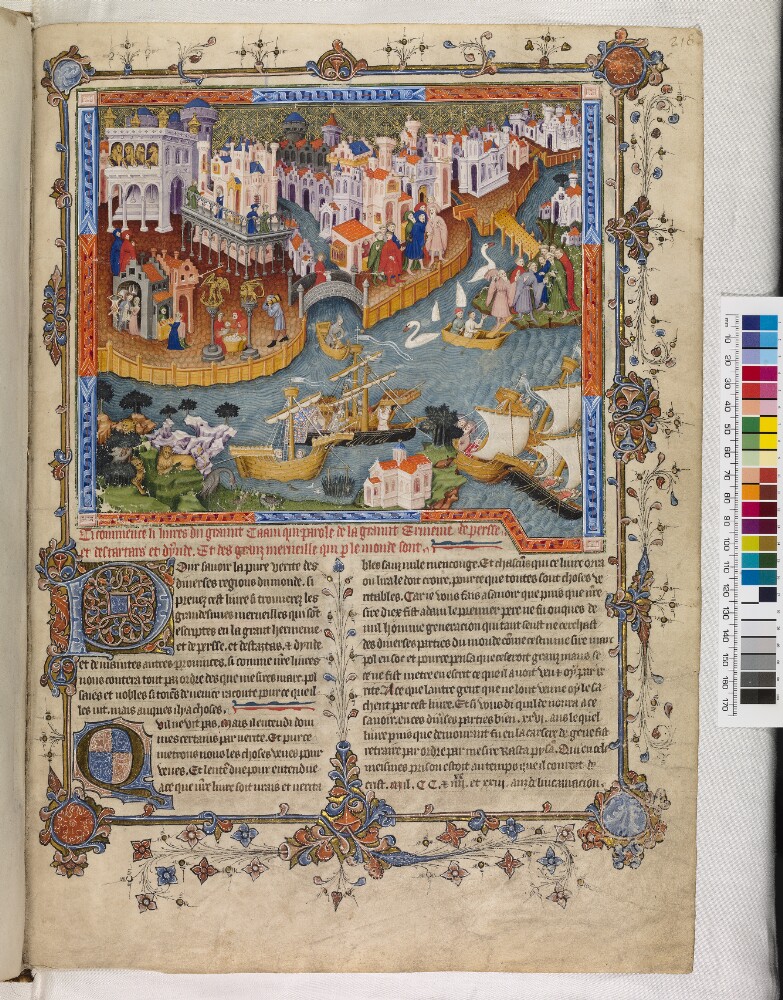 218
Ci commence li liures du graunt Caam qui parole de la graunt Ermenie de persse
et des tartars et dynde. Et des granz merueilles qui p le monde sont
Pour sauoir la pure verite des
diuerses regions du monde. si
prenez cest liure & trouuerez les
grandesimes merueilles qui sõt
escriptes en la grant hermenie
et de persse. et des tartars. & dynde
et de maintes autres prouinces. si comme nr̃e liures
nous contera tout par ordre des que me sires marc pol
saiges et nobles citoiẽs de venice raconte pour ce que il
les uit. mais auques il y a choses.
Qu il ne vit pas. Mais il entendi dom
mes certains par verite. Et pur ce
metrons nous les choses veues pour
veues. Et lentẽdue pour entendue
a ce que nr̃e liure soit urais et uerita
bles sanz nule mencouge. Et chascũs qui ce liure orra
ou lira le doit croire. pour ce que toutes sont choses ve
ritables. Car ie vous fais a sauoir que puis que nr̃e
sire diex fist adam le premier pere ne fu onques de
nul homme generacion qui tant seust ne cerchast
des diuerses parties du monde cõme cestui me sire marc
pol en sot et pour ce pensa que ce seroit granz maus se
ce ne fist metre en escrit ce que il auoit veu & oy par ve
rite. A ce que lautre gent que ne lont veu ne oy le sa
chent par cest liure. Et si vous di quil demora a ce
sauoir en ces diuses parties bien .xxvj. ans le quel
liure puis que demourant fu en la carsere de genes fist
retraire par ordre par mesire Rasta pysa. Qui en cel
meismes prison estoit au temps que il couroit de
crist .mil. CC. & iiij. et xviij. anz de lincarnacion.
10
20
30
40
50
60
70
80
90
100
110
120
130
140
150
160
170